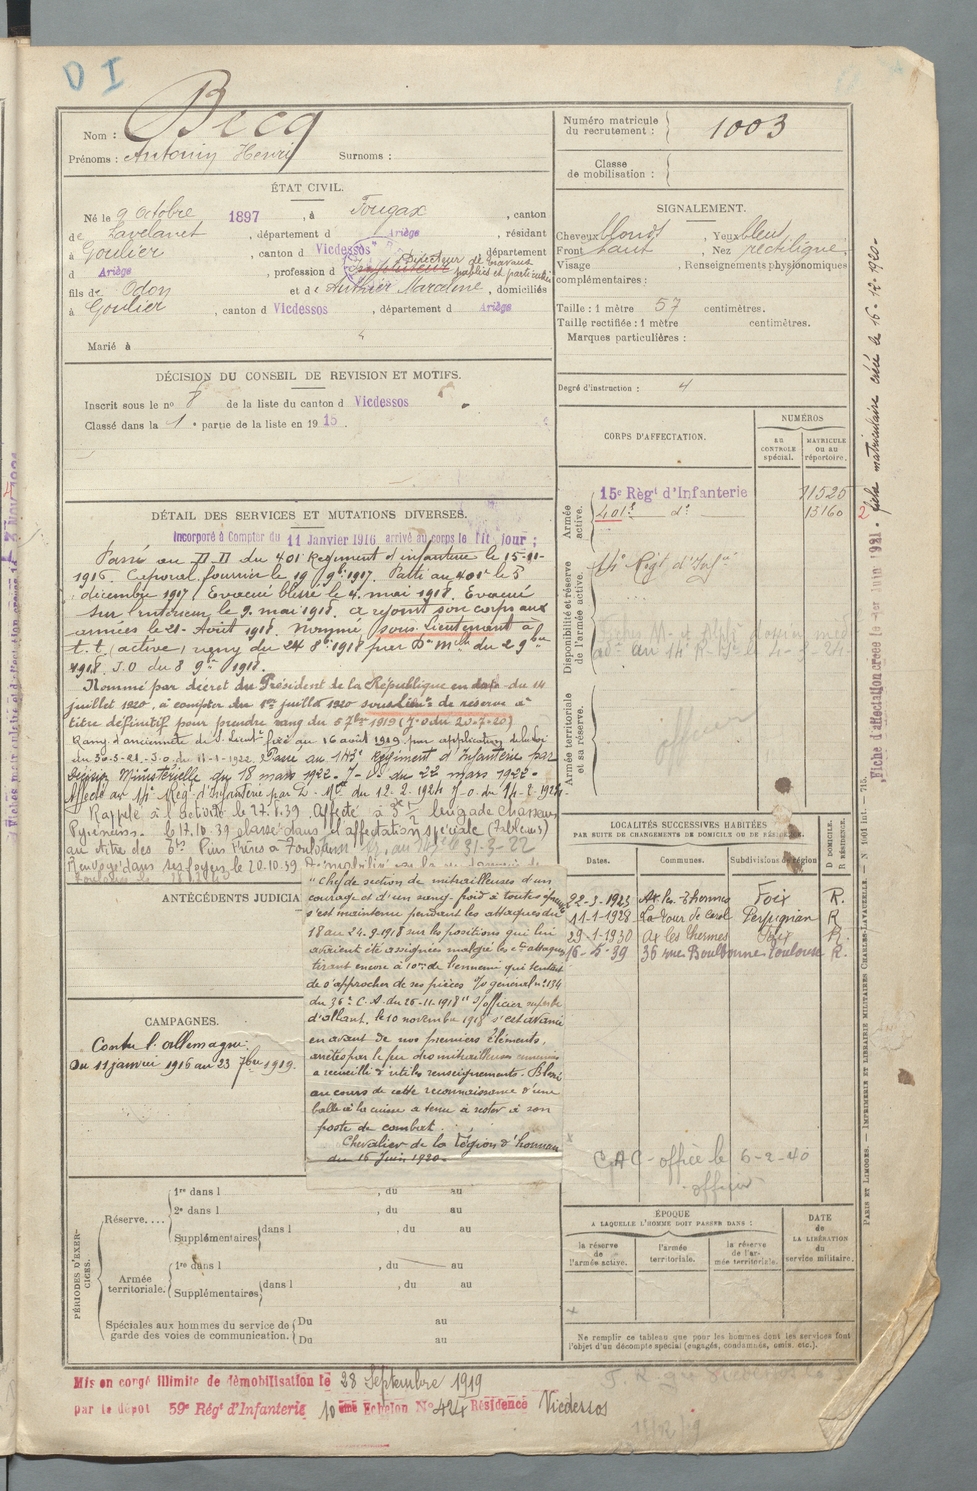 D I
Nom : Becq
Prénoms : Antonin Henri Surnoms :
Numéro matricule du recrutement : 1003
Classe de mobilisation :
ÉTAT CIVIL.
Né le 9 octobre 1897, à Fougax, canton
de Lavelanet, département d Ariège, résidant
à Goulier, canton d Vicdessos, département
d Ariège, profession d Directeur de travaux publics et particuliers
fils de Odon et de Authier Marceline, domiciliés
à Goulier, canton d Vicdessos, département d Ariège
Marié à
SIGNALEMENT.
Cheveux blonds, Yeux bleus
Front haut, Nez rectiligne
Visage , Renseignements physionomiques
complémentaires :
Taille : 1 mètre 57 centimètres.
Taille rectifiée : 1 mètre centimètres.
Marques particulières :
Degré d'instruction : 4
DÉCISION DU CONSEIL DE REVISION ET MOTIFS.
Inscrit sous le n° 8 de la liste du canton d Vicdessos
Classé dans la 1e partie de la liste en 1915.
CORPS D'AFFECTATION.
NUMÉROS
AU CONTROLE spécial.
MATRICULE OU AU répertoire.
Armée active.
15e Régt d'Infanterie 11526
401e do 13160
Disponibilité et réserve de l'armée active.
14e Régt d'Infie
Armée territoriale et sa réserve.
officier
DÉTAIL DES SERVICES ET MUTATIONS DIVERSES.
Incorporé à Compter du 11 Janvier 1916 arrivé au corps le dit jour ;
Passé au D.D du 401e Régiment d'infanterie le 15-11-
1916. Caporal fourrier le 19 9bre 1917. Parti au 401e le 5
décembre 1917. Evacué blessé le 4 mai 1918. Evacué
sur l'intérieur le 9 mai 1918. a rejoint son corps aux
armées le 21 Août 1918. Nommé sous-lieutenant à
t.t. (active) rang du 24 8bre 1918 par Don Mlle du 29 8bre
1918. J.O du 8 9bre 1918.
Nommé par décret du Président de la République en date du 14
juillet 1920, à compter du 1er juillet 1920 sous-lieut. de réserve à
titre définitif pour prendre rang du 5 7bre 1919 (J.O du 20-7-20)
Rang d'ancienneté de S. Lieutt fixé au 16 août 1919 par application de la loi
du 30-5-21. J.O. du 11-1-1922. Passé au 143e Régiment d'Infanterie par
Décision Ministérielle du 18 mars 1922. J.O. du 22 mars 1922.
Affecté au 14e Rég. d'Infanterie par D. Mlle du 12-2-1924 J.O. du 14-2-1924.
Rappelé à l'activité le 27.8.39 Affecté à 3e 1/2 brigade chasseurs
Pyrénéens. le 17.10.39 placé dans l'affectation spéciale (Tableau 3)
au titre des Ets Pius Frères à Toulouse
Renvoyé dans ses foyers le 20.10.39
ANTÉCÉDENTS JUDICIA
"Chef de section de mitrailleuses d'un
courage et d'un sang-froid à toute épreuve
s'est maintenu pendant les attaques du
18 au 24.9.1918 sur les positions qui lui
avaient été assignées malgré les ctre attaques
tirant encore à 10m de l'ennemi qui tentait
de s'approcher de ses pièces O/général n° 134
du 36e C.A. du 26-11-1918" "officier superbe
d'allant, le 10 novembre 1918 s'est avancé
en avant de nos premiers éléments,
arrêtés par le feu des mitrailleuses ennemies
a recueilli d'utiles renseignements. Blessé
au cours de cette reconnaissance d'une
balle à la cuisse a tenu à rester à son
poste de combat.
Chevalier de la Légion d'honneur
du 16 Juin 1920.
CAMPAGNES.
Contre l'allemagne.
Du 11 janvier 1916 au 23 7bre 1919.
LOCALITÉS SUCCESSIVES HABITÉES
PAR SUITE DE CHANGEMENTS DE DOMICILE OU DE RÉSIDENCE.
Dates. Communes. Subdivisions de région
D DOMICILE. R RÉSIDENCE.
22-3-1923 Ax les Thermes Foix R.
11-1-1928 La Tour de Carol Perpignan R
29-1-1930 Ax les Thermes Foix R.
16-5-39 36 rue Boulbonne Toulouse R.
CAC - officier le 6-2-40
officier
ÉPOQUE
A LAQUELLE L'HOMME DOIT PASSER DANS :
la réserve de l'armée active.
l'armée territoriale.
la réserve de l'armée territoriale.
DATE de LA LIBÉRATION du service militaire.
Ne remplir ce tableau que pour les hommes dont les services font
l'objet d'un décompte spécial (engagés, condamnés, omis, etc.).
PÉRIODES D'EXERCICES.
Réserve....
1re dans l , du au
2e dans l , du au
Supplémentaires dans l , du au
Armée territoriale.
1re dans l , du au
Supplémentaires dans l , du au
Spéciales aux hommes du service de garde des voies de communication.
Du au
Du au
Mis en congé illimité de démobilisation le 28 Septembre 1919
par le dépôt 59e Régt d'Infanterie 10ème Echelon N° 424 Résidence Vicdessos
Fiche d'affectation créée le 1er Juin 1921 - fiche matriculaire créée le 16-12-1920-
PARIS ET LIMOGES. — IMPRIMERIE ET LIBRAIRIE MILITAIRES CHARLES-LAVAUZELLE.